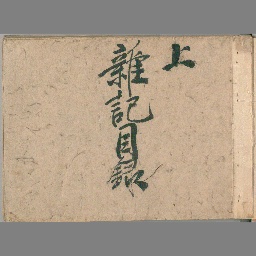 上
雜記目録